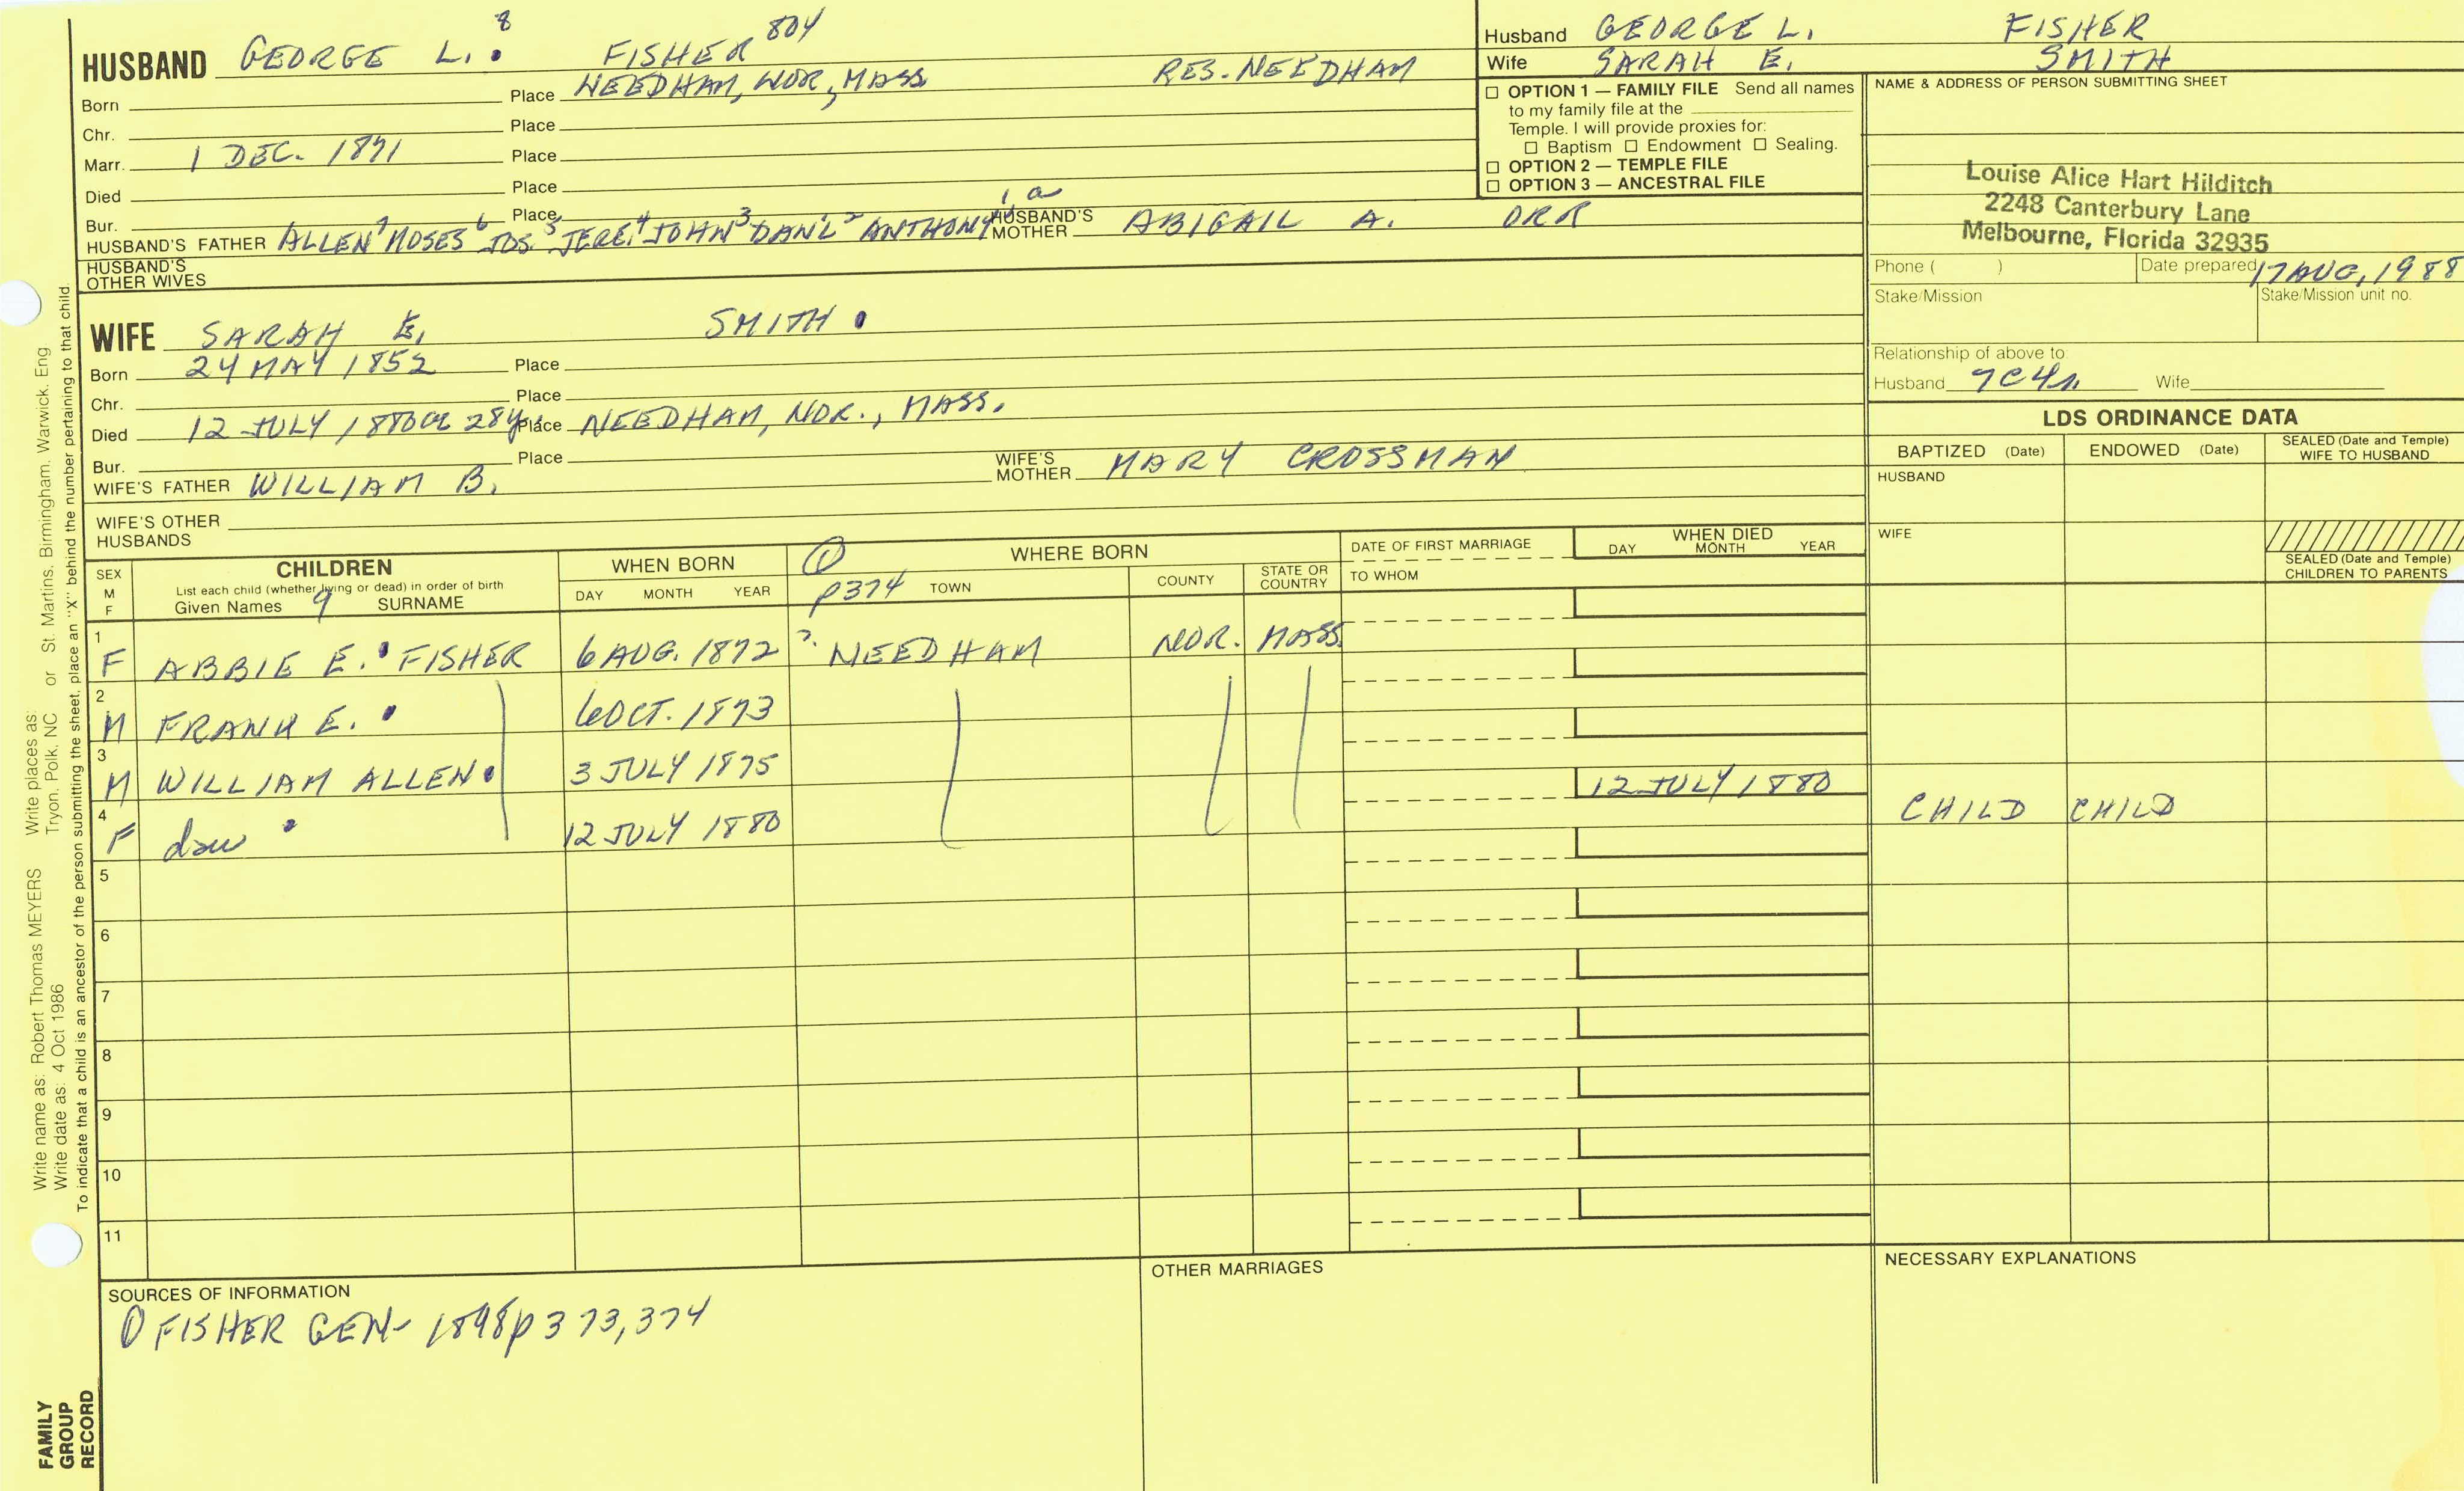 HUSBAND GEORGE L. 8 FISHER 804
Born Place NEEDHAM, NOR, MASS RES. NEEDHAM
Chr. Place
Marr. 1 DEC. 1871 Place
Died Place
Bur. Place
HUSBAND'S FATHER ALLEN7 MOSES6 JOS.5 JERE.4 JOHN3 DAN'L2 ANTHONY1 1a HUSBAND'S MOTHER ABIGAIL A. ORR
HUSBAND'S OTHER WIVES
WIFE SARAH E. SMITH
Born 24 MAY 1852 Place
Chr. Place
Died 12 JULY 1880 ae 28y Place NEEDHAM, NOR., MASS.
Bur. Place
WIFE'S FATHER WILLIAM B. WIFE'S MOTHER MARY CROSSMAN
WIFE'S OTHER HUSBANDS
Husband GEORGE L. FISHER
Wife SARAH E. SMITH
OPTION 1 — FAMILY FILE Send all names
to my family file at the
Temple. I will provide proxies for:
Baptism Endowment Sealing.
OPTION 2 — TEMPLE FILE
OPTION 3 — ANCESTRAL FILE
NAME & ADDRESS OF PERSON SUBMITTING SHEET
Louise Alice Hart Hilditch
2248 Canterbury Lane
Melbourne, Florida 32935
Phone ( ) Date prepared 17 AUG, 1988
Stake/Mission Stake/Mission unit no.
Relationship of above to:
Husband 7C4r Wife
LDS ORDINANCE DATA
BAPTIZED (Date) ENDOWED (Date) SEALED (Date and Temple) WIFE TO HUSBAND
HUSBAND
WIFE
SEALED (Date and Temple) CHILDREN TO PARENTS
SEX M F
CHILDREN
List each child (whether living or dead) in order of birth
Given Names 9 SURNAME
WHEN BORN
DAY MONTH YEAR
① p374 WHERE BORN
TOWN COUNTY STATE OR COUNTRY
DATE OF FIRST MARRIAGE
TO WHOM
WHEN DIED
DAY MONTH YEAR
1 F ABBIE E. FISHER 6 AUG. 1872 ? NEEDHAM NOR. MASS.
2 M FRANK E. 6 OCT. 1873
3 M WILLIAM ALLEN 3 JULY 1875
4 F dau 12 JULY 1880 12 JULY 1880 CHILD CHILD
5
6
7
8
9
10
11
SOURCES OF INFORMATION
① FISHER GEN- 1898 p 373, 374
OTHER MARRIAGES
NECESSARY EXPLANATIONS
Write name as: Robert Thomas MEYERS Write places as: Tryon, Polk, NC or St. Martins, Birmingham, Warwick, Eng
Write date as: 4 Oct 1986
To indicate that a child is an ancestor of the person submitting the sheet, place an "X" behind the number pertaining to that child.
FAMILY
GROUP
RECORD